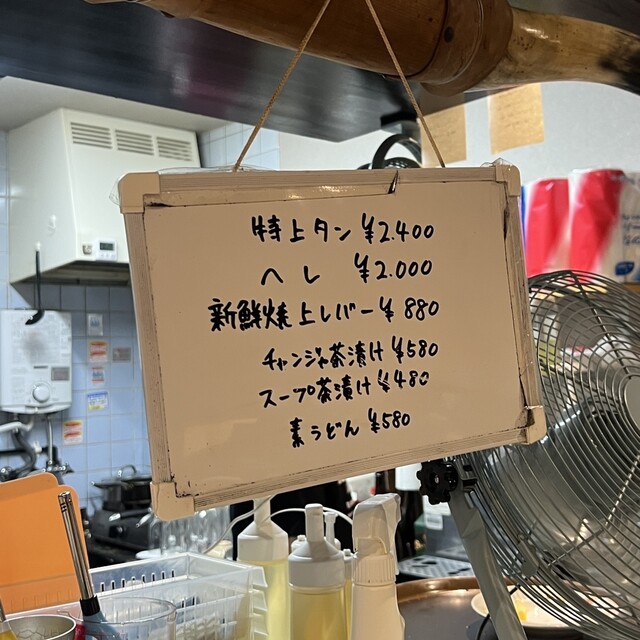 特上タン ¥2.400
ヘレ ¥2.000
新鮮焼上レバー ¥ 880
チャンジャ茶漬け ¥580
スープ茶漬け ¥480
素うどん ¥580